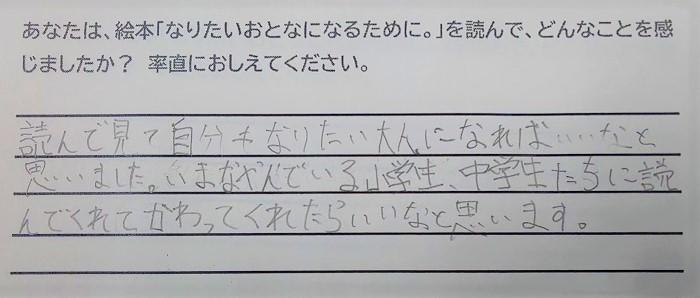 あなたは、絵本「なりたいおとなになるために。」を読んで、どんなことを感
じましたか？ 率直におしえてください。
読んで見て自分もなりたい大人になればいいなと
思いました。いまなやんでいる小学生、中学生たちに読
んでくれてがわってくれたらいいなと思います。